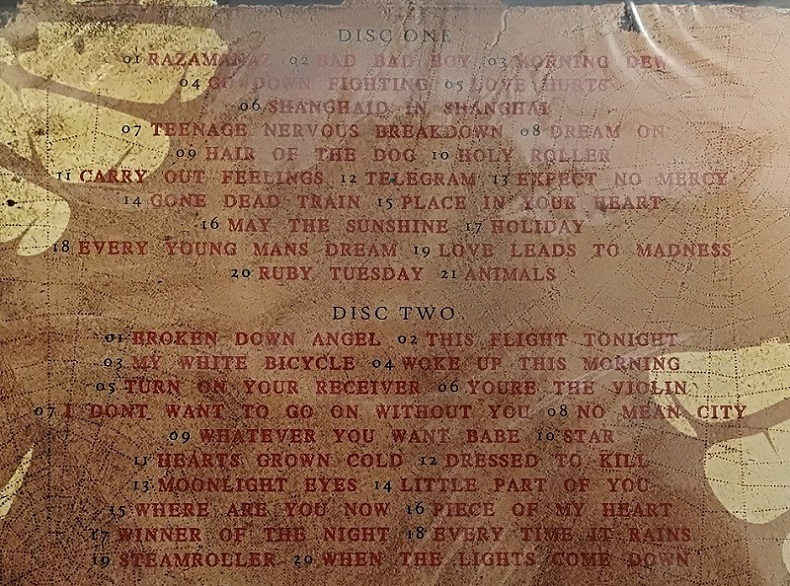 DISC ONE
01 RAZAMANAZ 02 BAD BAD BOY 03 MORNING DEW
04 GO DOWN FIGHTING 05 LOVE HURTS
06 SHANGHAID IN SHANGHAI
07 TEENAGE NERVOUS BREAKDOWN 08 DREAM ON
09 HAIR OF THE DOG 10 HOLY ROLLER
11 CARRY OUT FEELINGS 12 TELEGRAM 13 EXPECT NO MERCY
14 GONE DEAD TRAIN 15 PLACE IN YOUR HEART
16 MAY THE SUNSHINE 17 HOLIDAY
18 EVERY YOUNG MANS DREAM 19 LOVE LEADS TO MADNESS
20 RUBY TUESDAY 21 ANIMALS
DISC TWO
01 BROKEN DOWN ANGEL 02 THIS FLIGHT TONIGHT
03 MY WHITE BICYCLE 04 WOKE UP THIS MORNING
05 TURN ON YOUR RECEIVER 06 YOURE THE VIOLIN
07 I DONT WANT TO GO ON WITHOUT YOU 08 NO MEAN CITY
09 WHATEVER YOU WANT BABE 10 STAR
11 HEARTS GROWN COLD 12 DRESSED TO KILL
13 MOONLIGHT EYES 14 LITTLE PART OF YOU
15 WHERE ARE YOU NOW 16 PIECE OF MY HEART
17 WINNER OF THE NIGHT 18 EVERY TIME IT RAINS
19 STEAMROLLER 20 WHEN THE LIGHTS COME DOWN